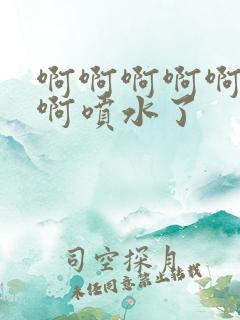 啊啊啊啊啊
啊噴水了
司空探月
未经同意禁止转载